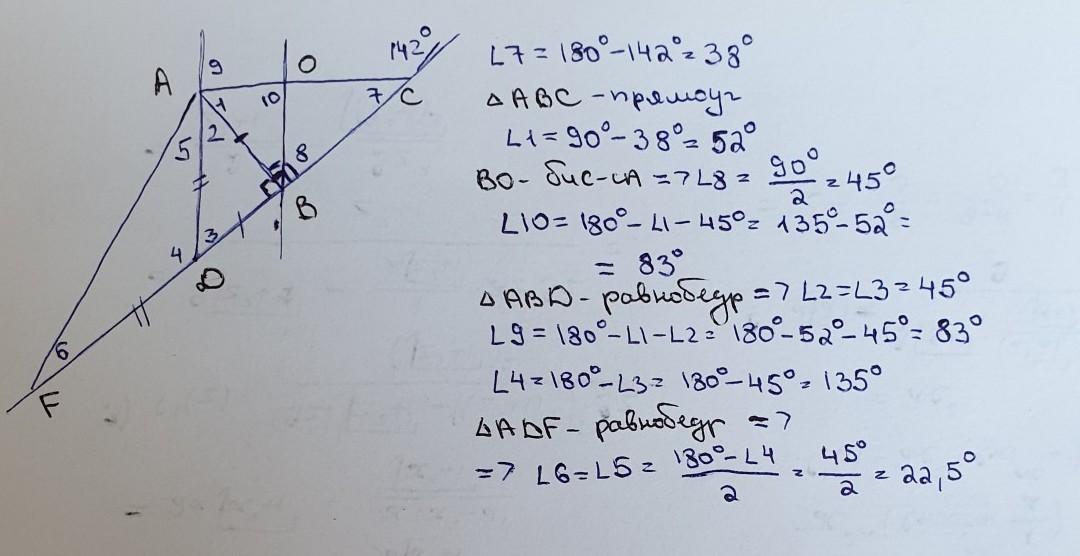 142°
A 9 O
1 10 7 C
5 2
8
B
4 3
D
6
F
∠7 = 180° - 142° = 38°
△ABC - прямоуг
∠1 = 90° - 38° = 52°
BO - бис-са => ∠8 = 90°/2 = 45°
∠10 = 180° - ∠1 - 45° = 135° - 52° =
= 83°
△ABD - равнобедр => ∠2 = ∠3 = 45°
∠9 = 180° - ∠1 - ∠2 = 180° - 52° - 45° = 83°
∠4 = 180° - ∠3 = 180° - 45° = 135°
△ADF - равнобедр =>
=> ∠6 = ∠5 = 180° - ∠4/2 = 45°/2 = 22,5°